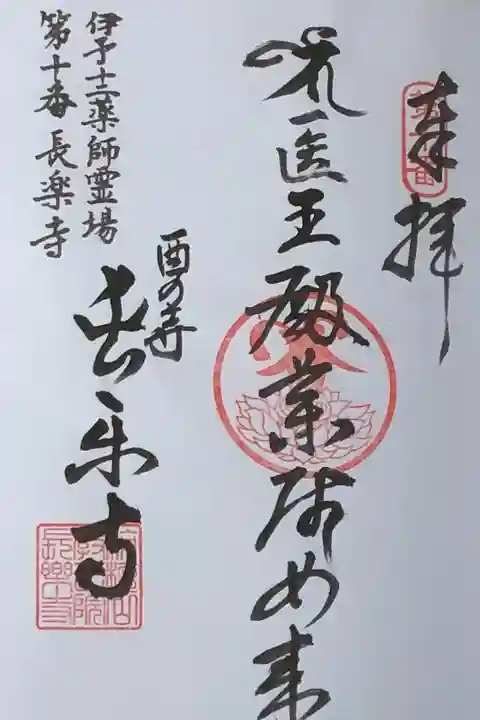 奉拝
医王殿薬師如来
酉の寺
長楽寺
伊予十二薬師霊場
第十番 長楽寺